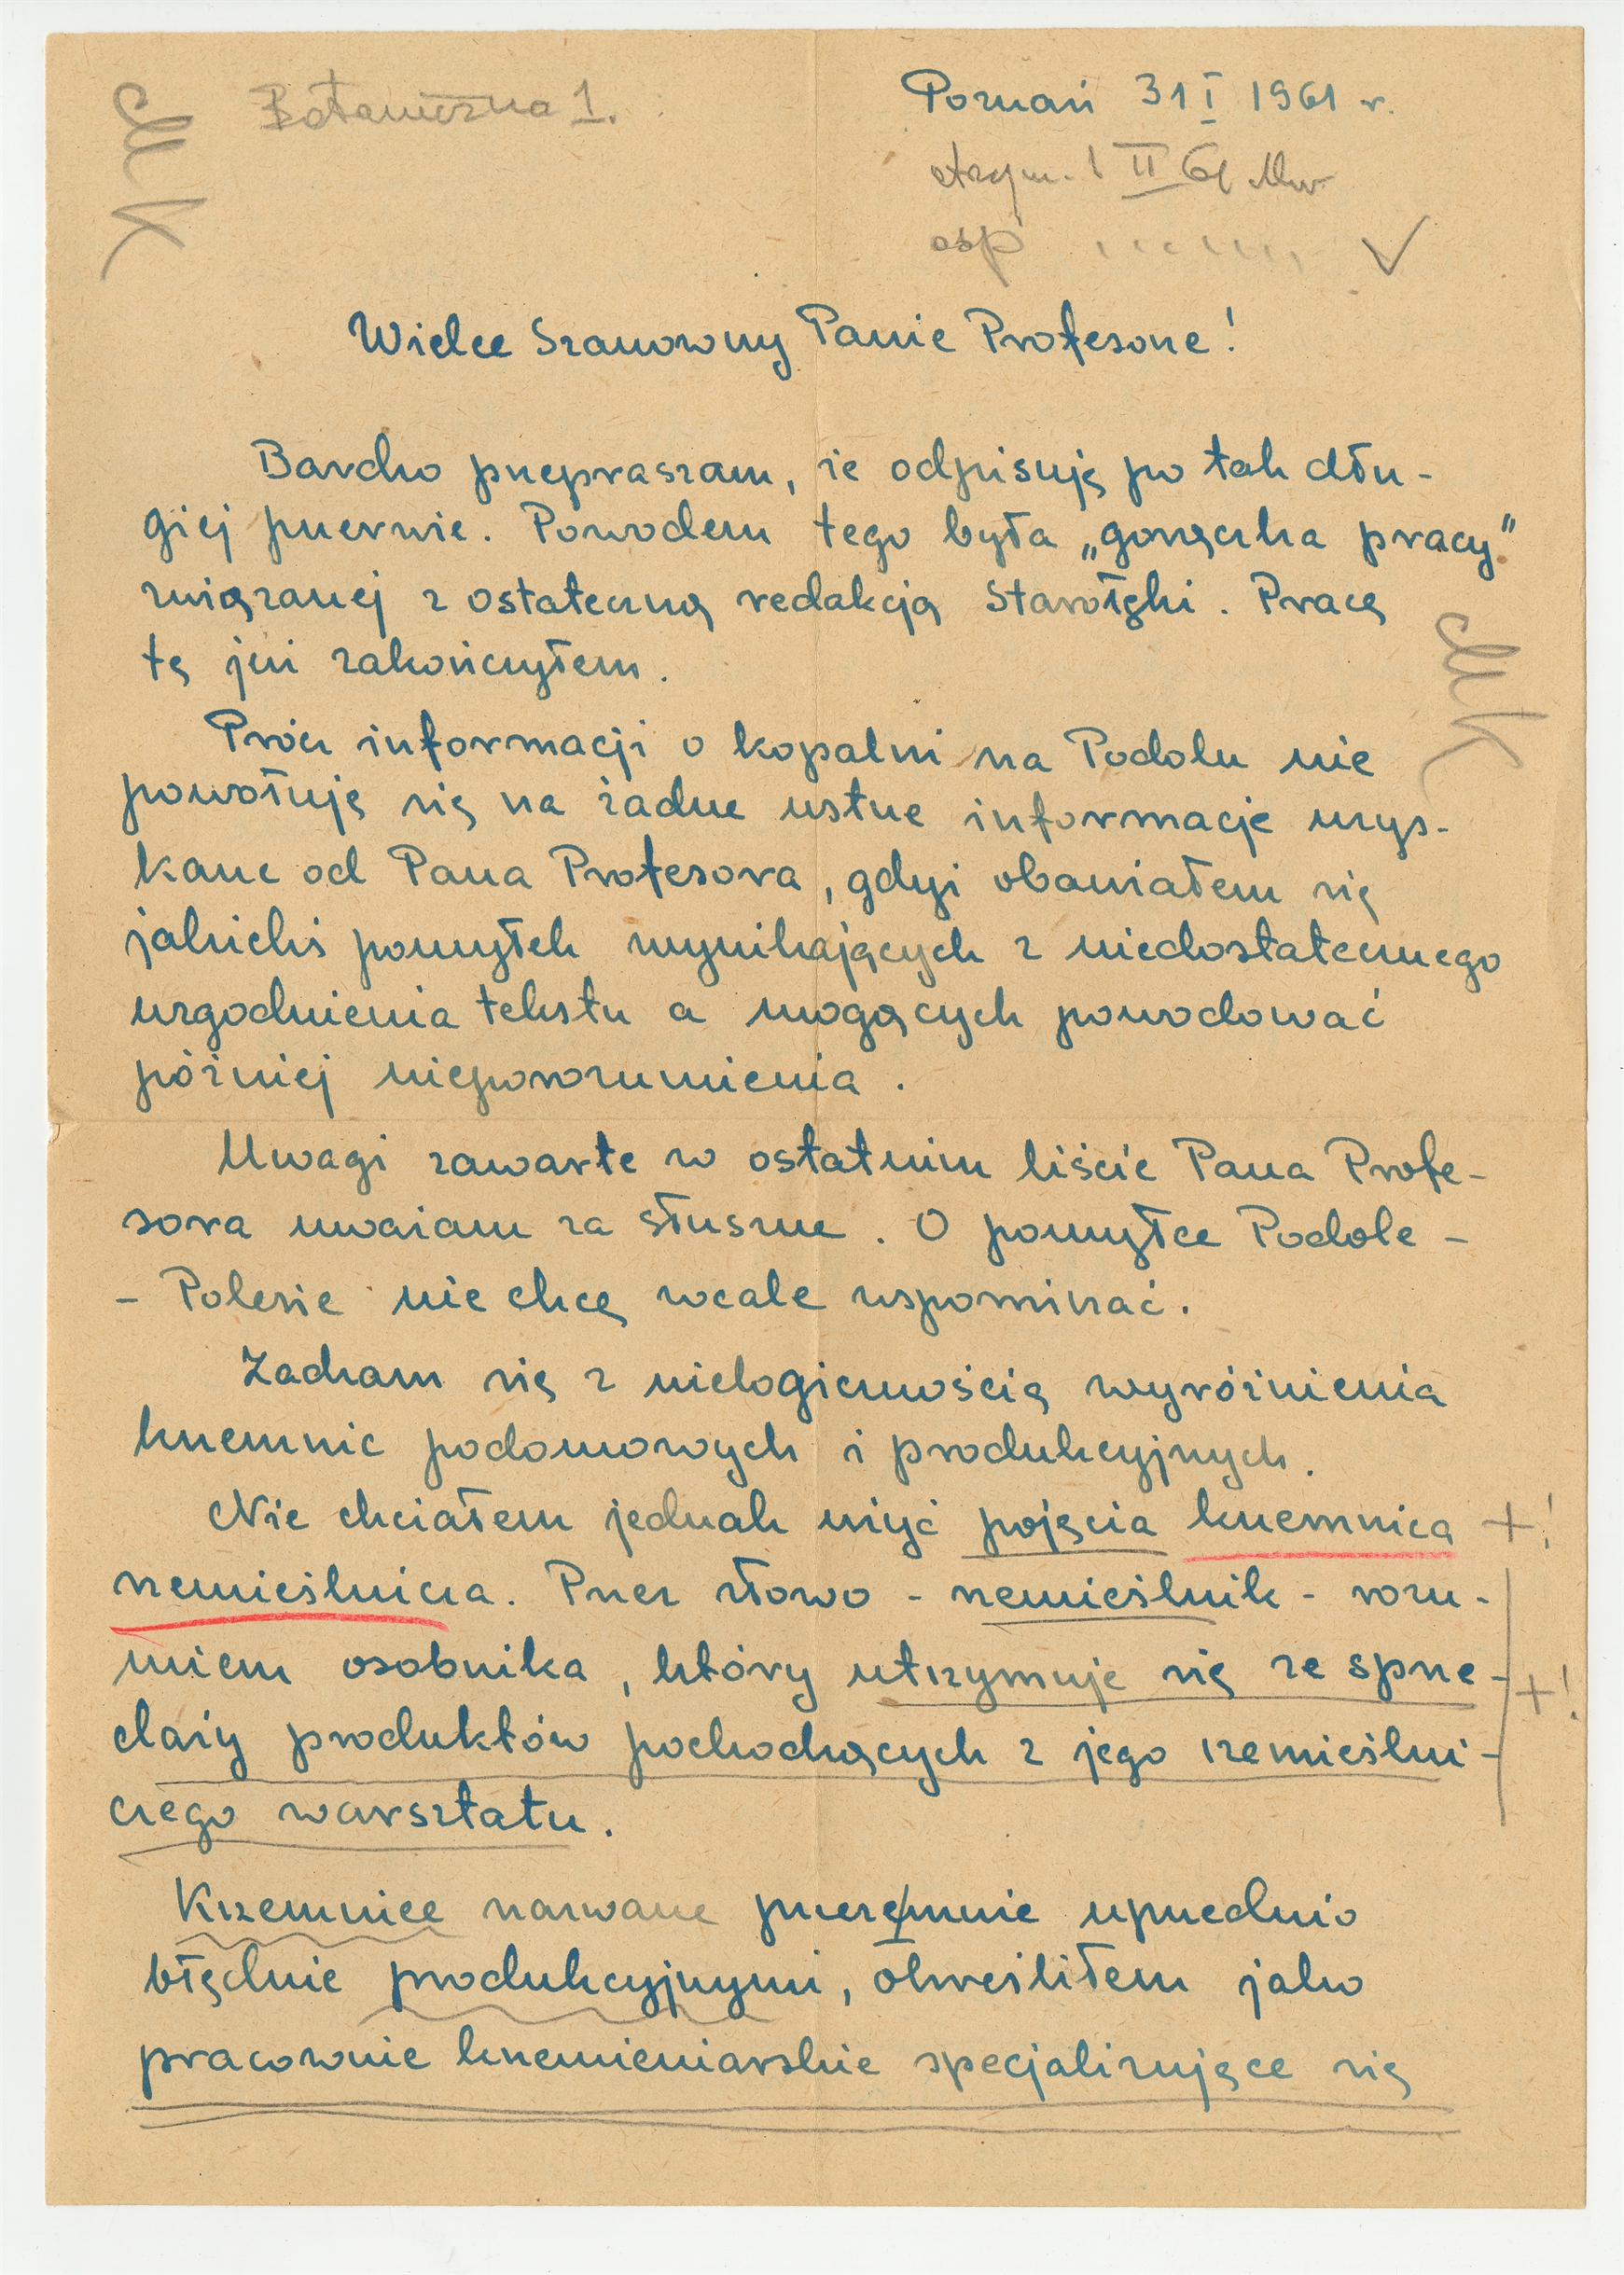 Botaniczna 1.
Poznań 31 I 1961 r.
otrzym. 1 II 61
odp
Wielce Szanowny Panie Profesorze!
Bardzo przepraszam, że odpisuję po tak dłu-
giej przerwie. Powodem tego była „gorączka pracy"
związanej z ostateczną redakcją Starołęki. Pracę
tę już zakończyłem.
Prócz informacji o kopalni na Podolu nie
powołuję się na żadne ustne informacje uzys-
kane od Pana Profesora, gdyż obawiałem się
jakichś pomyłek wynikających z niedostatecznego
uzgodnienia tekstu a mogących powodować
później nieporozumienia.
Uwagi zawarte w ostatnim liście Pana Profe-
sora uważam za słuszne. O pomyłce Podole -
- Polesie nie chcę wcale wspominać.
Zadzam się z nielogicznością wyróżnienia
krzemnic podomowych i produkcyjnych.
Nie chciałem jednak użyć pojęcia krzemnica +!
rzemieślnicza. Przez słowo - rzemieślnik - rozu-
miem osobnika, który utrzymuje się ze sprze- +!
daży produktów pochodzących z jego rzemieślni-
czego warsztatu.
Krzemnice nazwane przezemnie uprzednio
błędnie produkcyjnymi, określiłem jako
pracownie krzemieniarskie specjalizujące się